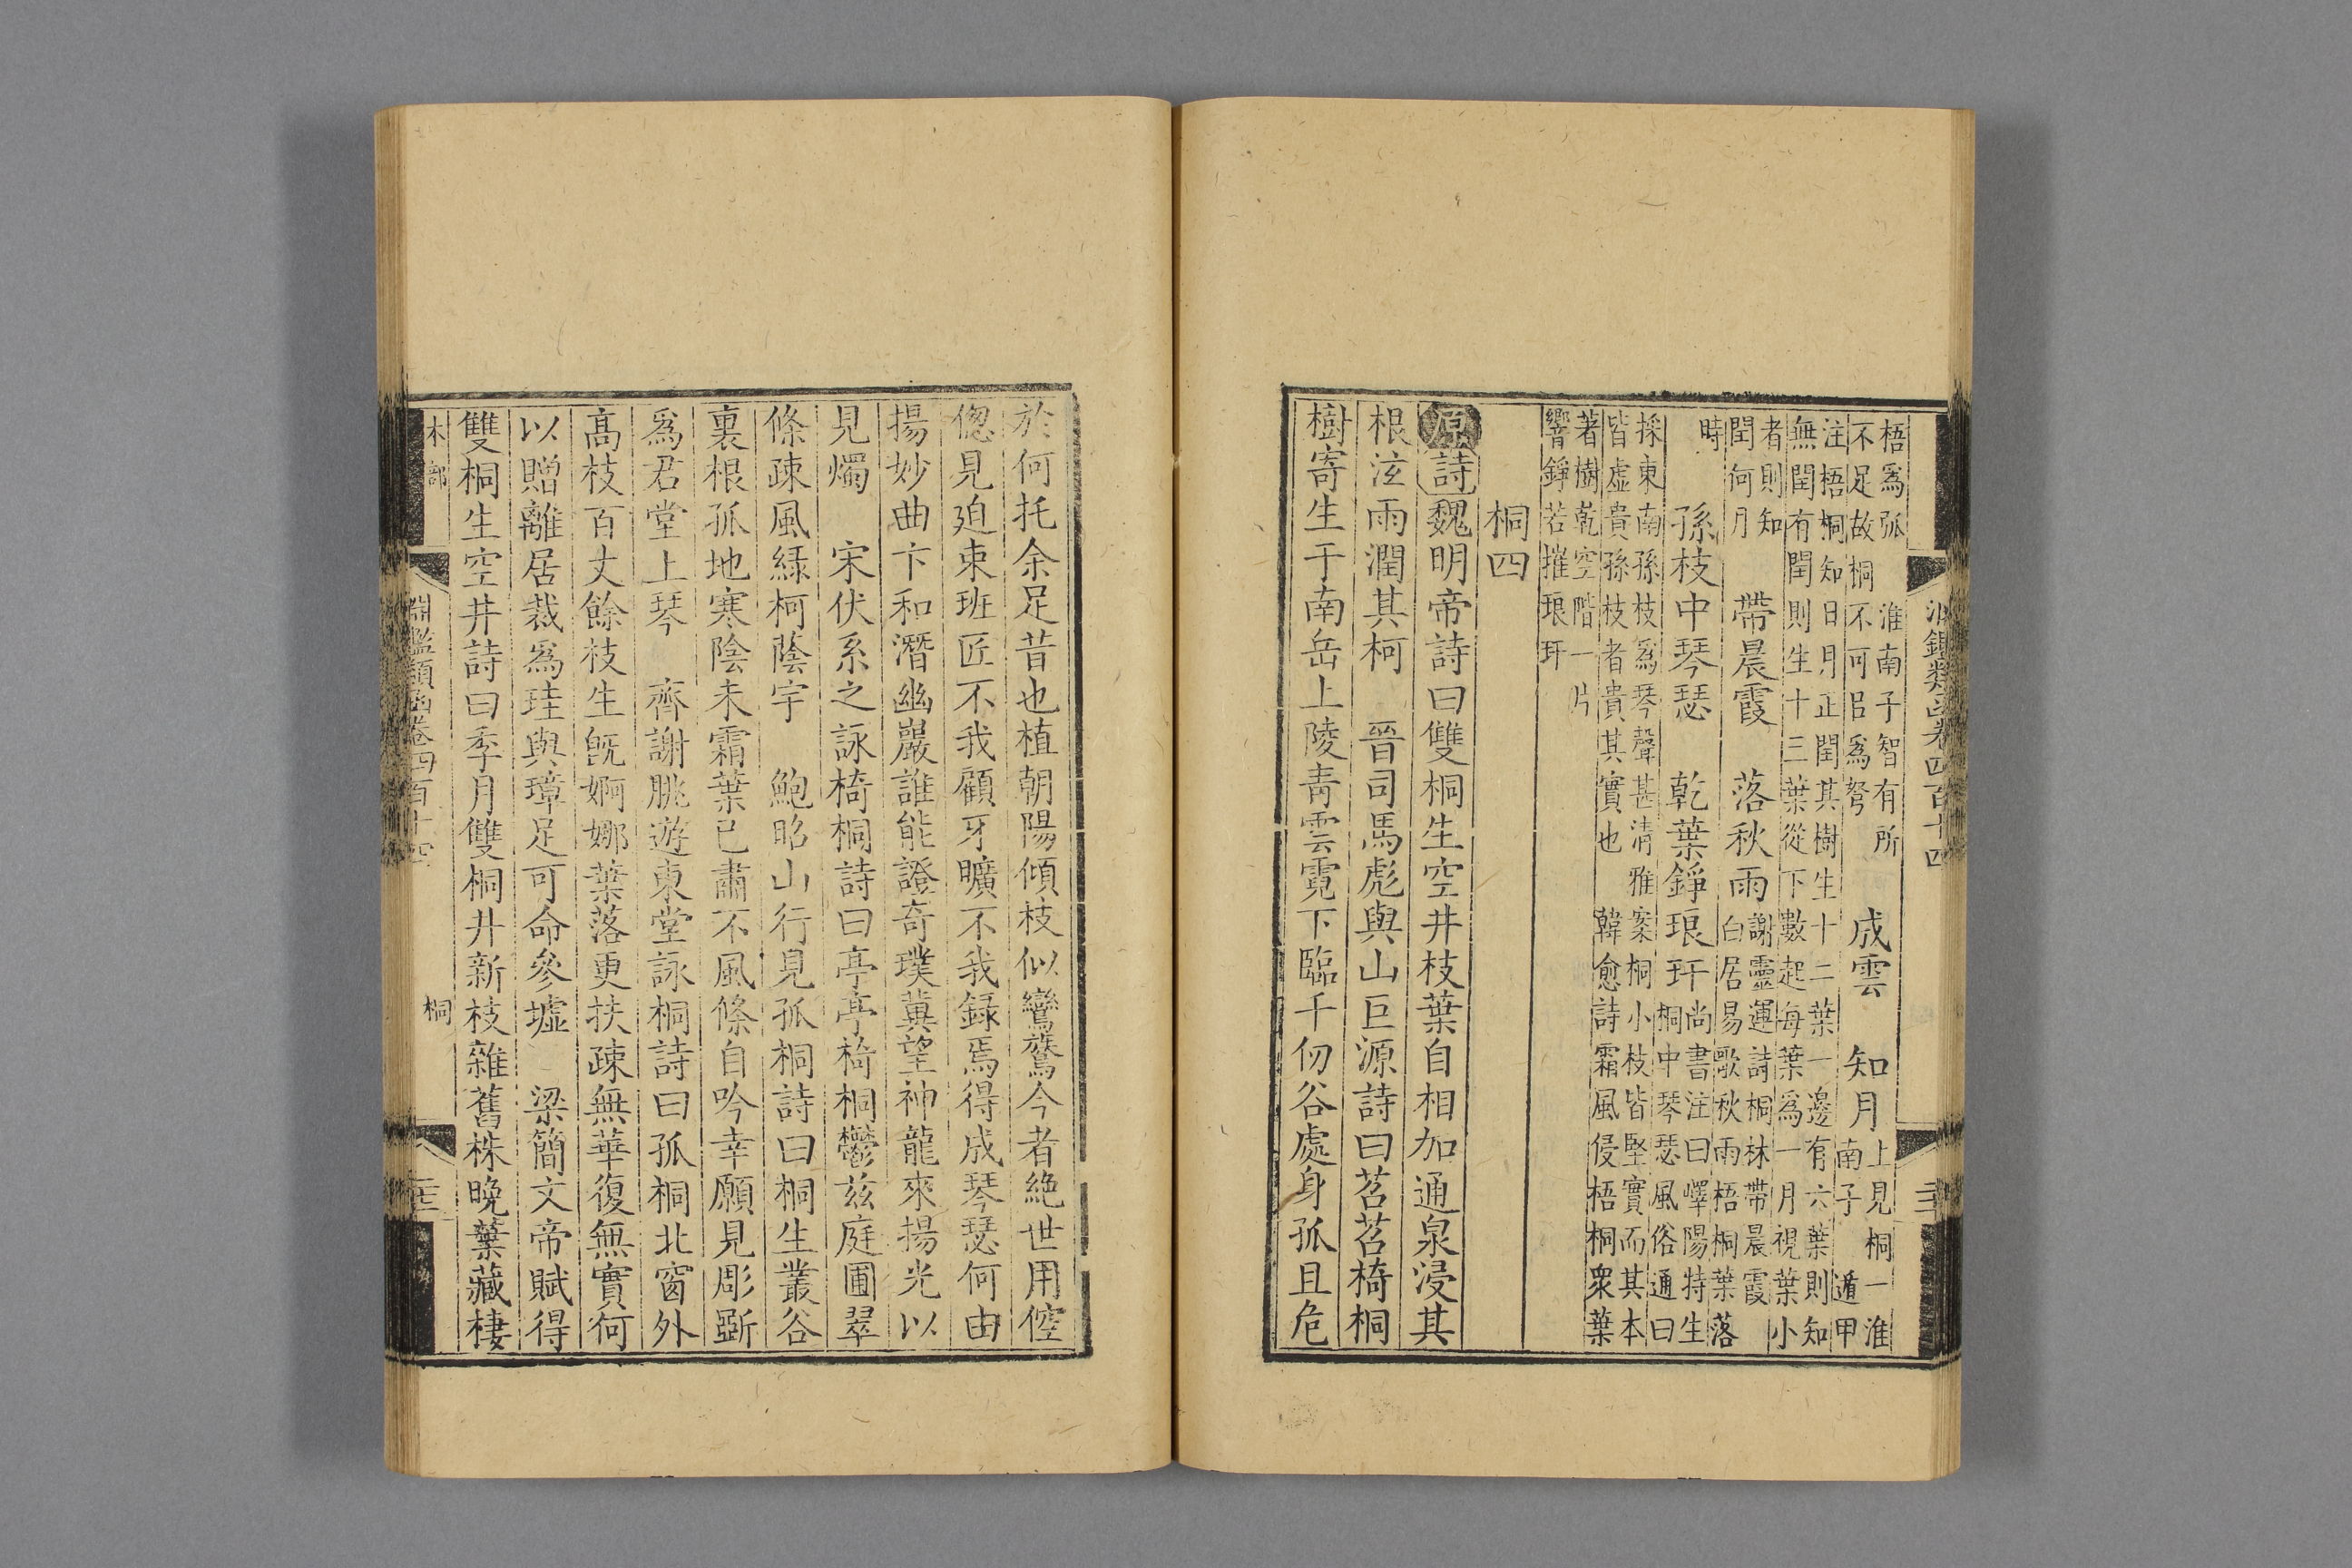 淵鑑類函卷四百十四
二十
梧爲弧 淮南子智有所
不足故桐不可㠯爲弩
成雲 知月
上見桐一淮
南子 遁甲
注梧桐知日月正閏其樹生十二葉一邊有六葉則知
無閏有閏則生十三葉從下數起每葉爲一月視葉小
者則知
閏何月
帶晨霞 落秋雨
謝靈運詩桐林帶晨霞
白居易歌秋雨梧桐葉落
時
孫枝中琴瑟 乾葉錚琅玕
尚書注曰嶧陽特生
桐中琴瑟風俗通曰
採東南孫枝爲琴聲甚清雅案桐小枝皆堅實而其本
皆虛貴孫枝者貴其實也 韓愈詩霜風侵梧桐衆葉
著樹乾空階一片
響錚若摧琅玕
桐四
原詩魏明帝詩曰雙桐生空井枝葉自相加通泉浸其
根泫雨潤其柯 晉司馬彪與山巨源詩曰苕苕椅桐
樹寄生于南岳上陵青雲霓下臨千仞谷處身孤且危
於何托余足昔也植朝陽傾枝似鸞鷟今者絶世用倥
偬見迫束班匠不我顧牙曠不我録焉得成琴瑟何由
揚妙曲卞和潛幽巖誰能證奇璞冀望神龍來揚光以
見燭 宋伏系之詠椅桐詩曰亭亭椅桐鬱兹庭圃翠
條疎風緑柯蔭宇 鮑昭山行見孤桐詩曰桐生叢谷
裏根孤地寒陰未霜葉已肅不風條自吟幸願見彫斵
爲君堂上琴 齊謝脁遊東堂詠桐詩曰孤桐北窗外
高枝百丈餘枝生旣婀娜葉落更扶疎無華復無實何
以贈離居裁爲珪與璋足可命參墟 梁簡文帝賦得
雙桐生空井詩曰季月雙桐井新枝雜舊株晚葉藏棲
木部
淵鑑類函卷四百十四
桐